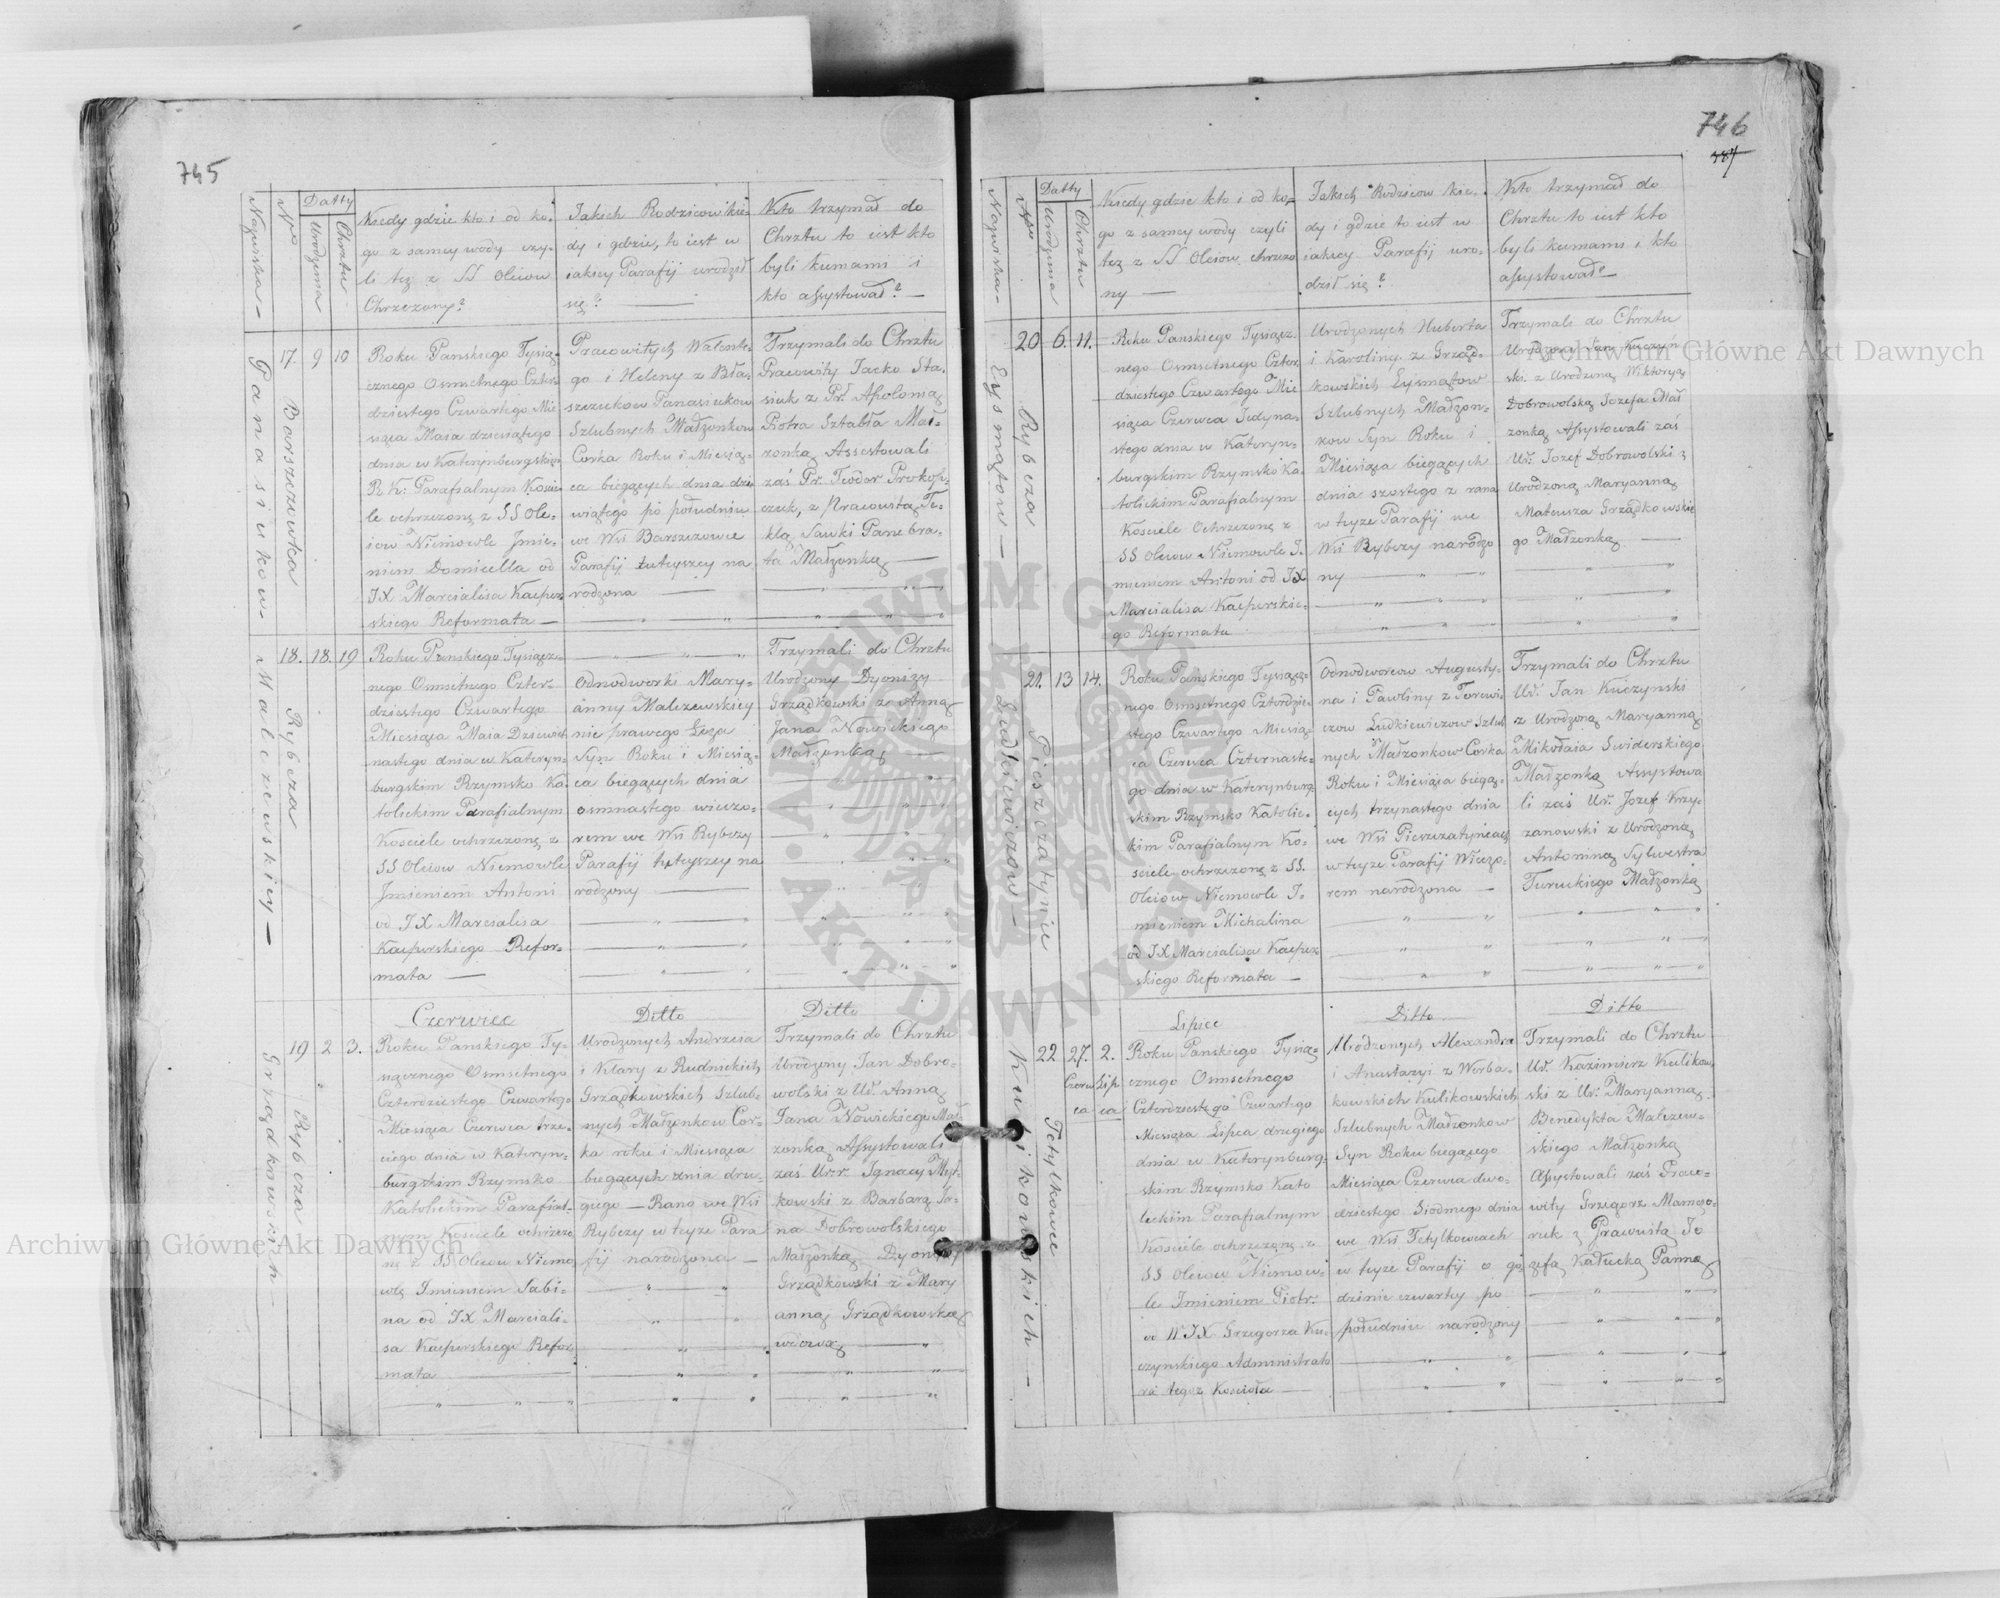 745
Nazwiska
Nro
Datty
Urodzenia
Chrztu
Kiedy gdzie kto i od ko=
go z samey wody czy=
li tez z SS Oleiow
Chrzczony?
Jakich Rodzicow kie=
dy i gdzie, to iest w
iakiey Parafij urodził
się?
Kto trzymał do
Chrztu to iest kto
byli kumami i
kto assystował?
Panasiukow
Barszczowka
17. 9 10
Roku Panskiego Tysią=
cznego Osmsetnego Czter=
dziestego Czwartego Mie
siąca Maia dziesiątego
dnia w Katerynburgskiem
R. K. Parafialnym Koscie
le ochrzczone z SS Ole=
iow Niemowle Jmie=
niem Domicella od
JX Marcialisa Kacper
skiego Reformata
Pracowitych Walente=
go i Heleny z Bła=
szczukow Panasiukow
Szlubnych Małżonkow
Corka Roku i Miesią=
ca bieżących dnia dzie
wiątego po południu
we Wsi Barszczowce
Parafij tuteyszey na
rodzona
Trzymali do Chrztu
Pracowity Jacko Sta=
siuk z Pr. Apolonią
Piotra Sztabła Mał=
żonką Assestowali
zaś Pr. Teodor Prokop=
czuk, z Pracowitą Te=
klą Sawki Panebra=
ta Małżonką
Malczewskiey
Rybcza
18. 18. 19
Roku Panskiego Tysiącz=
nego Osmsetnego Czter=
dziestego Czwartego
Miesiąca Maia Dziewięt
nastego dnia w Kateryn=
burgskim Rzymsko Ka=
tolickim Parafialnym
Kosciele ochrzczone z
SS Oleiow Niemowle
Jmieniem Antoni
od JX Marcialisa
Kacperskiego Refor=
mata
Odnodworki Mary=
anny Malczewskiey
nie prawego Łoża
Syn Roku i Miesią=
ca bieżących dnia
osmnastego wieczo=
rem we Wsi Rybczy
Parafij tuteyszey na
rodzony
Trzymali do Chrztu
Urodzony Dyonizy
Grządkowski z Anną
Jana Nowickiego
Małżonką
Grządkowskich
Rybcza
Czerwiec
Ditto
Ditto
19 2 3.
Roku Panskiego Ty=
siącznego Osmsetnego
Czterdziestego Czwartego
Miesiąca Czerwca trze=
ciego dnia w Kateryn=
burgskim Rzymsko
Katolickim Parafial=
nym Kosciele ochrzczo
ne z SS Oleiow Niemo
wle Jmieniem Sabi=
na od JX Marciali=
sa Kacperskiego Refor=
mata
Urodzonych Andrzeia
i Klary z Rudnickich
Grządkowskich Szlub=
nych Małżonkow Cor=
ka roku i Miesiąca
bieżących dnia dru=
giego Rano we Wsi
Rybczy w teyze Para
fij narodzona
Trzymali do Chrztu
Urodzony Jan Dobro=
wolski z Ur. Anną
Jana Nowickiego Mał
żonką Assystowali
zaś Urr. Ignacy
kowski z Barbarą Ja=
na Dobrowolskiego
Małżonką Dyonizy
Grządkowski z Mary
anną Grządkowską
wdową
746
Nazwiska
Nro
Datty
Urodzenia
Chrztu
Kiedy gdzie kto i od ko=
go z samey wody czyli
tez z SS Oleiow chrzczo
ny
Jakich Rodzicow kie=
dy i gdzie to iest w
iakiey Parafij uro=
dził się?
Kto trzymał do
Chrztu to iest kto
byli kumami i kto
assystował?
Lysmątow
Rybcza
20 6. 11.
Roku Panskiego Tysiącz
nego Osmsetnego Czter
dziestego Czwartego Mie
siąca Czerwca Jedyna=
stego dnia w Kateryn=
burgskim Rzymsko Ka=
tolickim Parafialnym
Kosciele Ochrzczone z
SS Oleiow Niemowle J=
mieniem Antoni od JX
Marcialisa Kacperskie=
go Reformata
Urodzonych Huberta
i Karoliny z Grząd=
kowskich Lysmątow
Szlubnych Małżon=
kow Syn Roku i
Miesiąca bieżących
dnia szostego z rana
w teyze Parafij we
Wsi Rybczy narodzo
ny
Trzymali do Chrztu
Urodzony Jan Kuczyn
ski z Urodzoną Wiktoryą
Dobrowolską Jozefa Mał
żonką Assystowali zaś
Ur. Jozef Dobrowolski z
Urodzoną Maryanną
Mateusza Grządkowskie
go Małżonką
Ludkiewiczow
Pieszczatynie
21. 13 14.
Roku Panskiego Tysiącz=
nego Osmsetnego Czterdzie=
stego Czwartego Miesią=
ca Czerwca Czternaste=
go dnia w Katerynburg
skim Rzymsko Katolic=
kim Parafialnym Ko=
sciele ochrzczone z SS.
Oleiow Niemowle J=
mieniem Michalina
od JX Marcialisa Kacper
skiego Reformata
Odnodworcow Augusty=
na i Pawliny z Torewi=
czow Ludkiewiczow Szlub
nych Małżonkow Corka
Roku i Miesiąca bieżą=
cych trzynastego dnia
we Wsi Pieszczatyńcach
w teyze Parafij Wieczo=
rem narodzona
Trzymali do Chrztu
Ur. Jan Kuczynski
z Urodzoną Maryanną
Mikołaia Swiderskiego
Małżonką Assystowa
li zaś Ur. Jozef Krzy=
żanowski z Urodzoną
Antoniną Sylwestra
Tureckiego Małżonką
Kulikowskich
Tetylkowce
Lipiec
Ditto
Ditto
22 27. 2.
Czerw Lip
ca ca
Roku Panskiego Tysią=
cznego Osmsetnego
Czterdziestego Czwartego
Miesiąca Lipca drugiego
dnia w Katerynburg=
skim Rzymsko Kato
lickim Parafialnym
Kosciele ochrzczone z
SS Oleiow Niemow=
le Jmieniem Piotr.
od WJX Grzegorza Ku=
czynskiego Administrato
ra tegoz Kosciola
Urodzonych Alexandra
i Anastazyi z Werba=
kowskich Kulikowskich
Szlubnych Małżonkow
Syn Roku bieżącego
Miesiąca Czerwca dwo=
dziestego Siodmego dnia
we Wsi Tetylkowcach
w teyze Parafij o go
dzinie czwartey po
południu narodzony
Trzymali do Chrztu
Ur. Kazimierz Kulikow
ski z Ur. Maryanną
Benedykta Malczew=
skiego Małżonką
Assystowali zaś Praco=
wity Grzegorz
ruk z Pracowitą Jo
zefą Kałucką Panną
Archiwum Główne Akt Dawnych
Archiwum Główne Akt Dawnych
ARCHIWUM GŁÓWNE AKT DAWNYCH